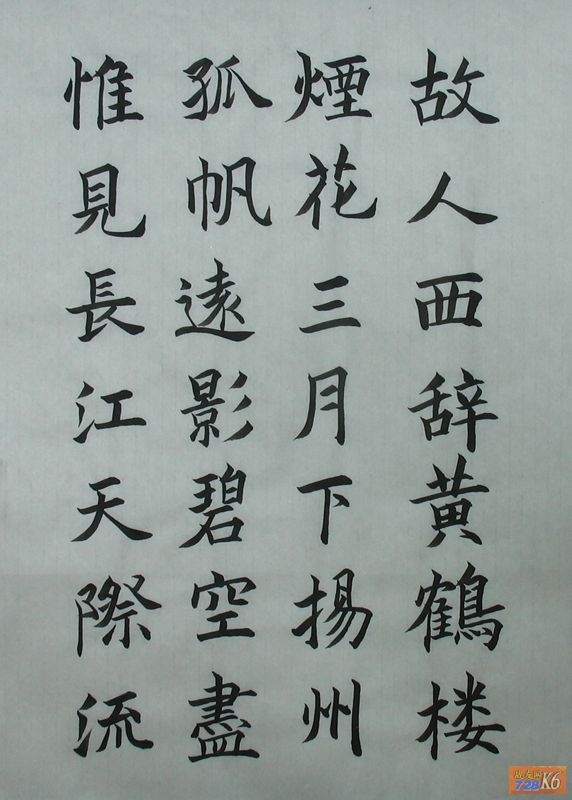 故人西辞黄鶴楼
煙花三月下揚州
孤帆遠影碧空盡
惟見長江天際流
728K6